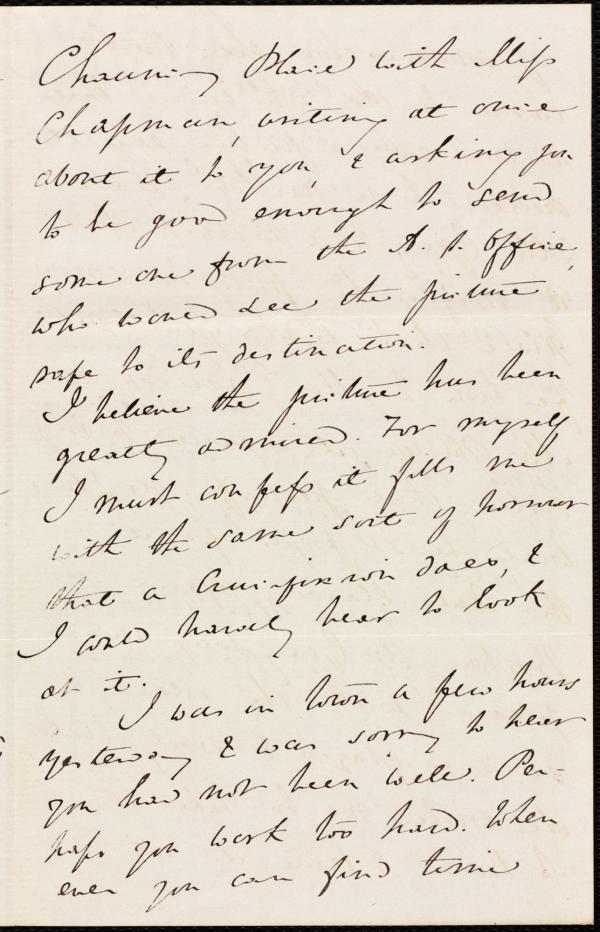 Chauncy Place with Miss
Chapman, writing at once
about it to you, & asking you
to be good enough to send
some one from the A. S. Office,
who would see the picture
safe to its destination.
I believe the picture has been
greatly admired. For myself
I must confess it fills me
with the same sort of horrour
that a Crucifixion does, &
I could hardly bear to look
at it.
I was in town a few hours
yesterday & was sorry to hear
you had not been well. Per-
haps you work too hard. When
ever you can find time